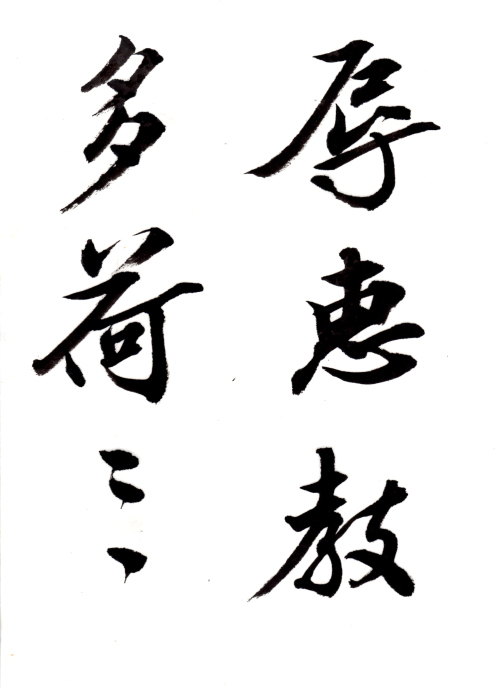 辱恵教
多荷〻